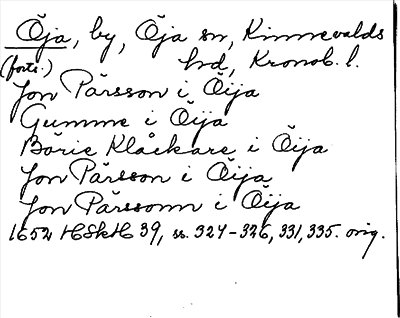 Öja, by, Öja sn, Kinnevalds
(forts.) hd, Kronob. l.
Jon Pärsson i Öija
Gumme i Öija
Börie Klåckare i Öija
Jon Pärsson i Öija
Jon Pärssonn i Öija
1652 HSkH 39, ss. 324-326, 331, 335. orig.